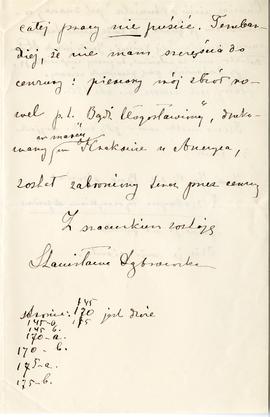 całej pracy nie puścić. Tembar-
dziej, że nie mam szczęścia do
cenzury: pierwszy mój zbiór no-
wel p.t. „Bądź błogosławiony", druko-
w marcu
wany w Krakowie u Anczyca,
został zabroniony teraz przez cenzurę
Z szacunkiem zostaję
Stanisława Dąbrowska
145
stronic: 170 jest dwie
145-a. 175
145-b.
170-a.
170-b.
175-a.
175-b.